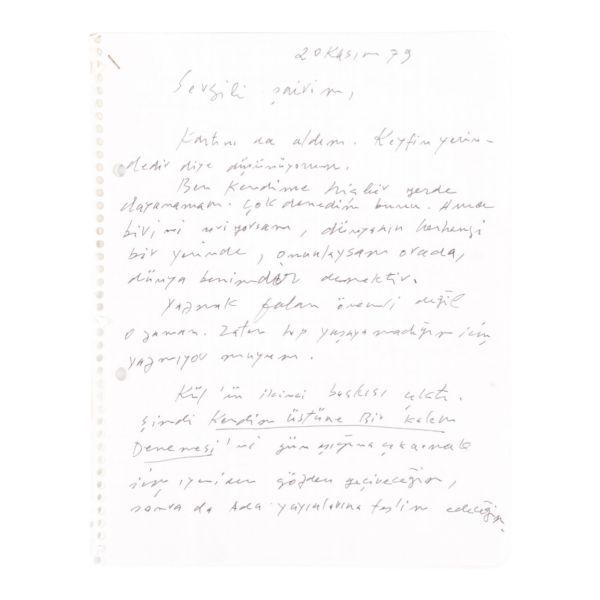 20 Kasım 79
Sevgili şairim,
Kartını da aldım. Keyfin yerin-
dedir diye düşünüyorum.
Ben kendime hiç bir yerde
dayanamam. Çok denedim bunu. Ama
birini seviyorsam, dünyanın herhangi
bir yerinde, onunlaysam orada,
dünya benimdir demektir.
Yazmak falan önemli değil
o zaman. Zaten hep yaşayamadığım için
yazmıyor muyum.
Kül'ün ikinci baskısı çıktı.
Şimdi Kendim Üstüne Bir Kalem
Denemesi'ni gün ışığına çıkarmak
için yeniden gözden geçireceğim,
sonra da Ada yayınlarına teslim edeceğim.